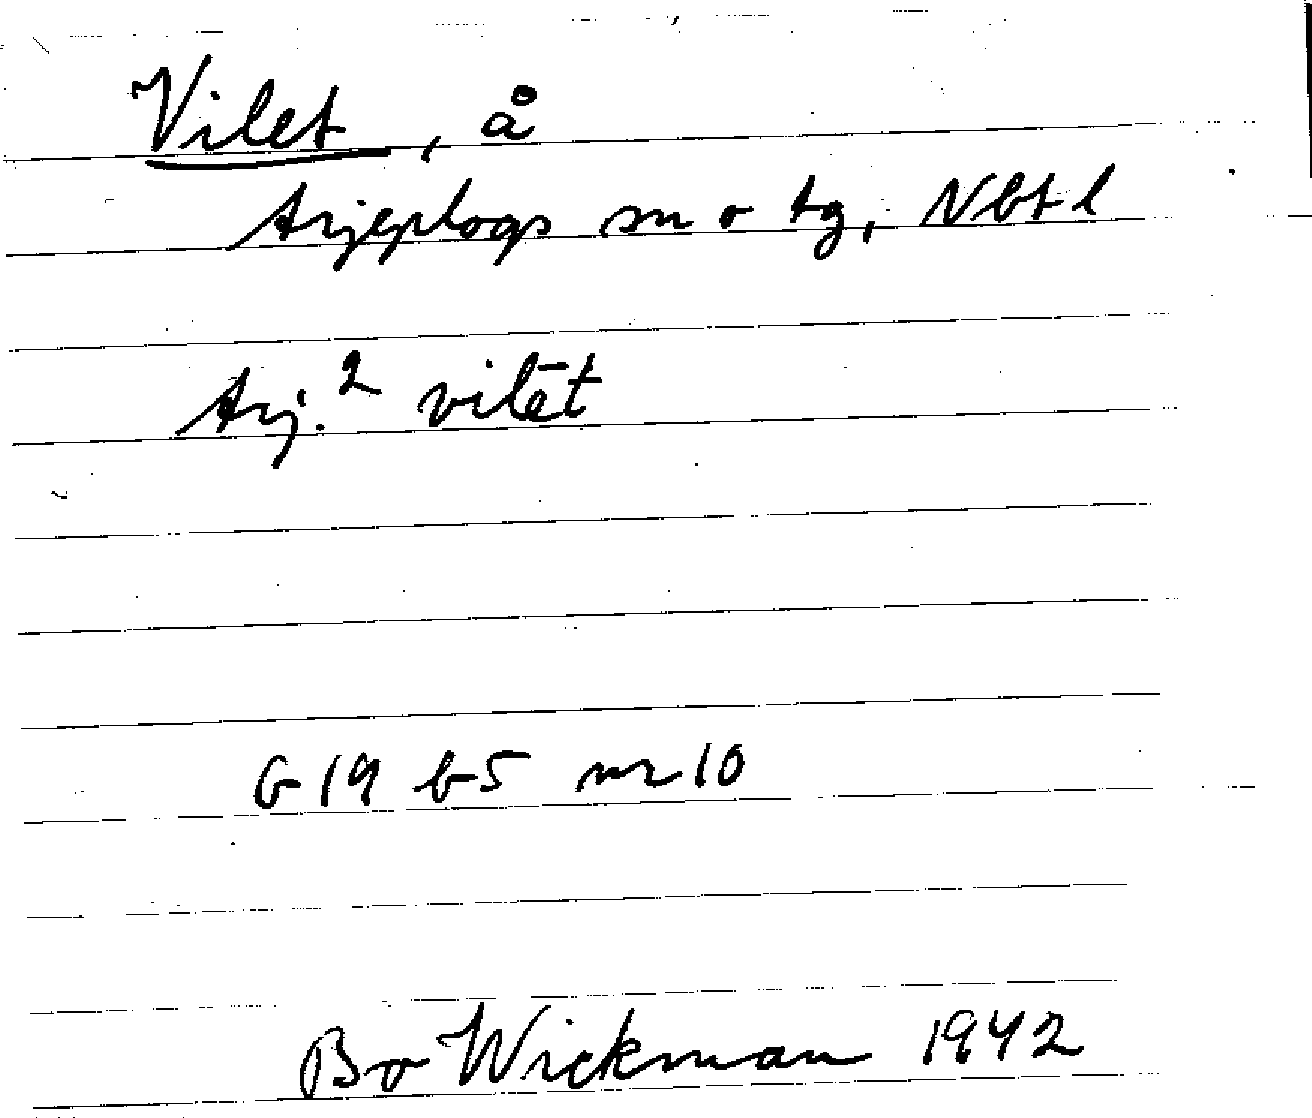 Vilet, å
Arjeplogs sn o tg, Nbtl
Arj.² vilēt
G 19 b5 nr 10
Bo Wickman 1942